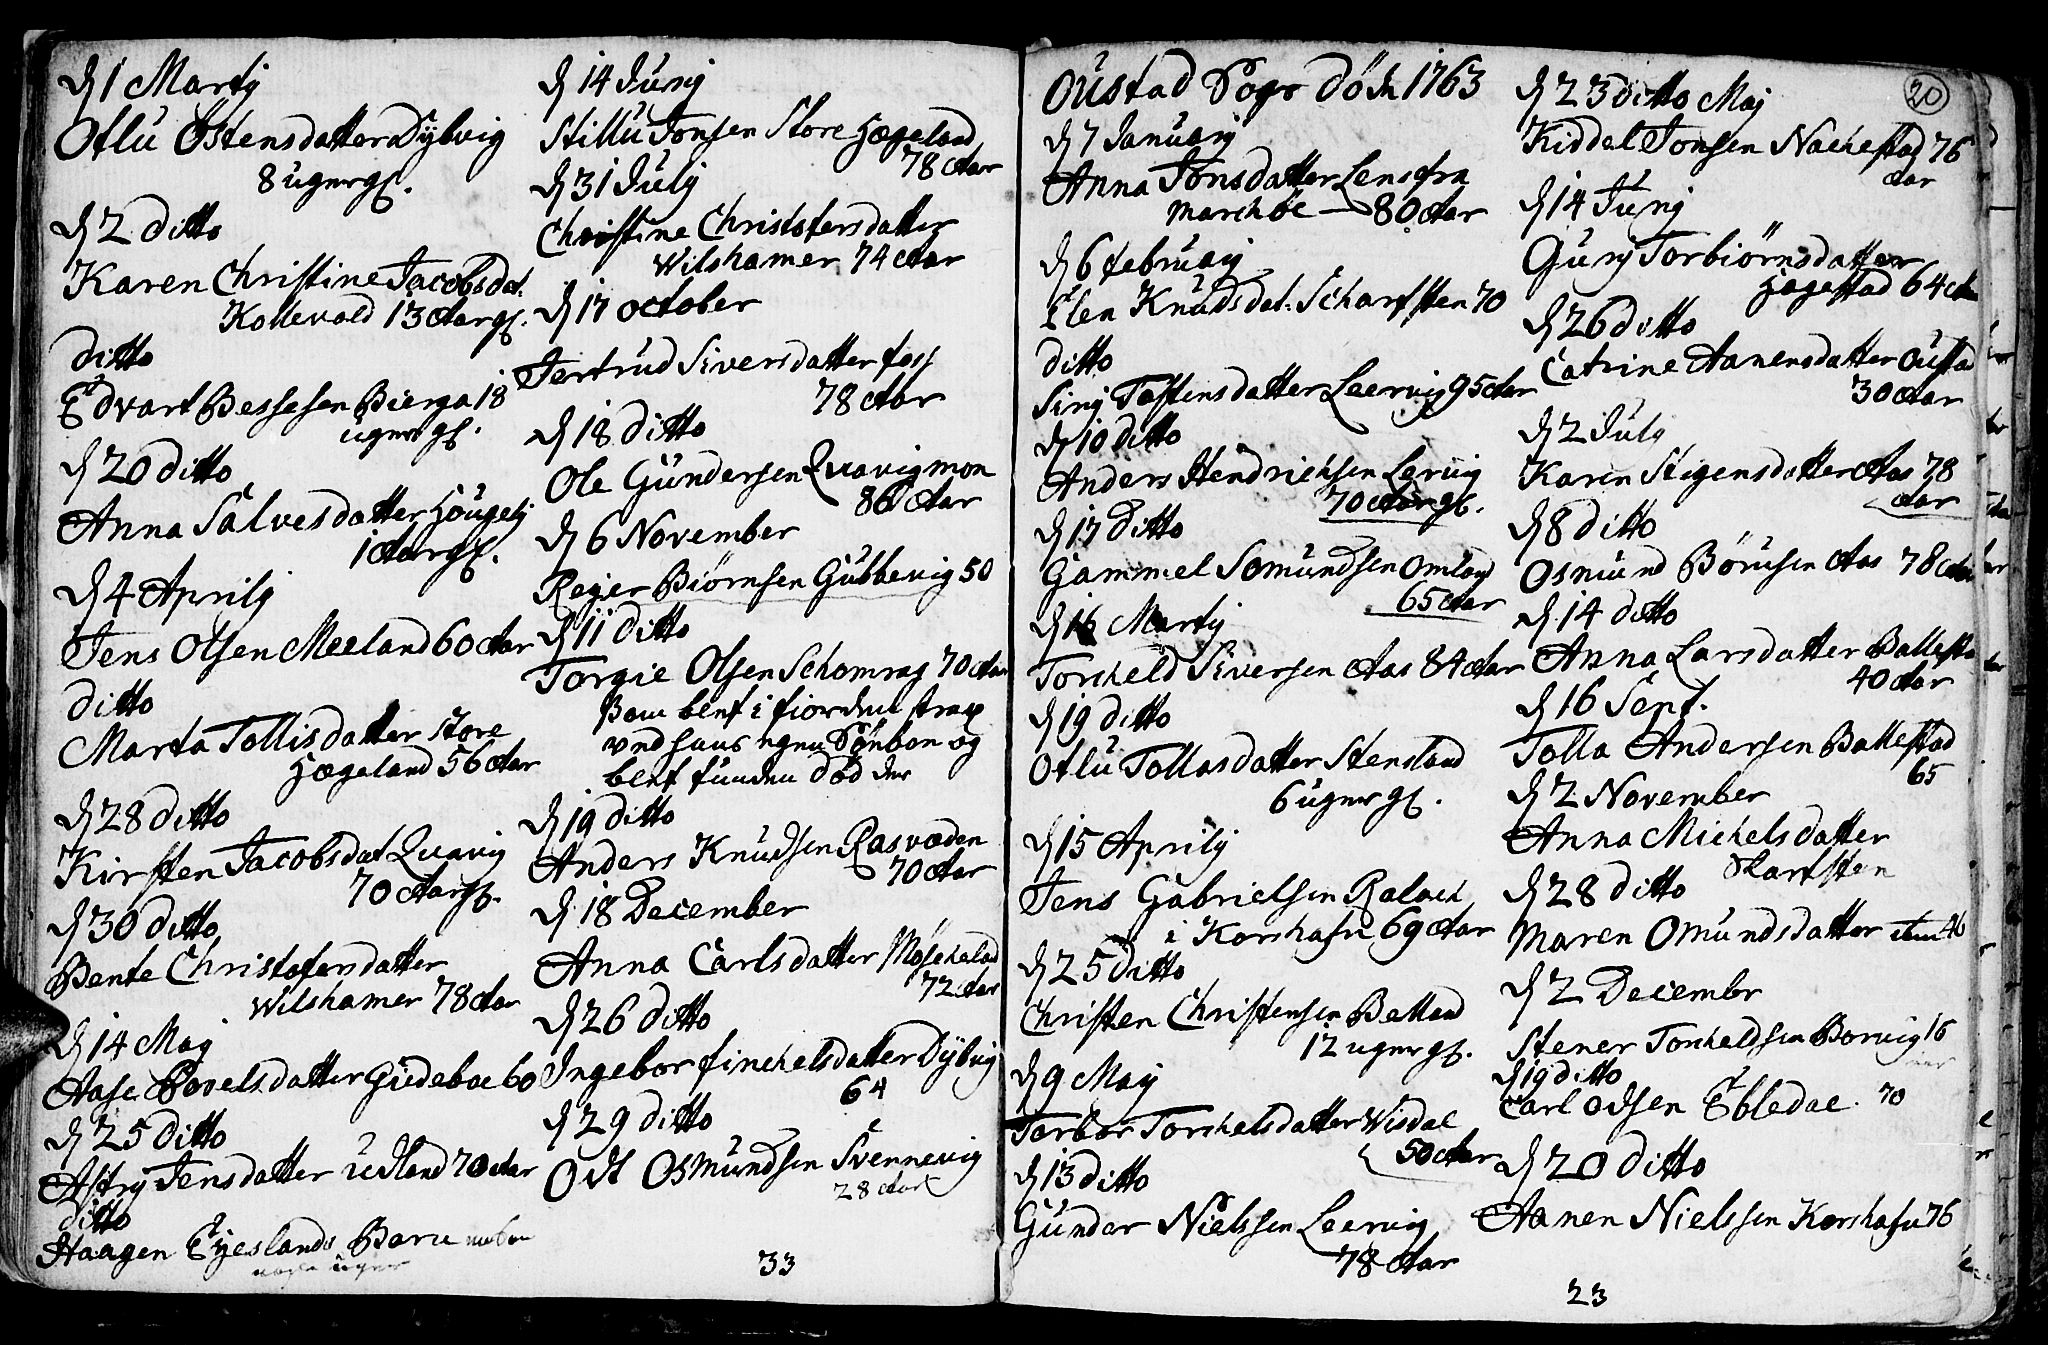 D 1 Martij
Otlu Östensdatter Dybvig
8 uger gl.
D 2 ditto
Karen Christine Jacobsdat:
Kollevold 13 Aar gl.
ditto
Edvart Bessesen Bierga 18
uger gl.
D 20 ditto
Anna Salvesdatter Höugelj
1 Aar gl.
D 4 Aprilj
Jens Olsen Meeland 60 Aar
ditto
Marta Tollisdatter Store
Hægeland 56 Aar
D 28 ditto
Kirsten Jacobsdat Quavig
70 Aar gl.
D 30 ditto
Bente Christofersdatter
Wilshamer 78 Aar
D 14 Maj
Aase Povelsdatter Giedeboe 60
D 25 Ditto
Astry Jensdatter Udland 70 Aar
ditto
Haagen Eyeslands Barn
uger
D 14 Junj
Stillu Jonsen Store Hægeland
78 Aar
D 31 Julj
Christine Christofersdatter
Wilshamer 74 Aar
D 17 october
Jertrud Siversdatter foss
78 Aar
D 18 ditto
Ole Gundersen Quavigmon
80 Aar
D 6 November
Reyer Biörnsen Gubbevig 50
D 11 ditto
Torgie Olsen Schomrag 70 Aar
Som blef i fiorden strax
ved hans egen Söebon og
blef funden död der
D 19 ditto
Anders Knudsen Rasvoden
70 Aar
D 18 December
Anna Carlsdatter Möskeland
72 Aar
D 26 ditto
Ingebor finchelsdatter Dybvig
64
D 29 ditto
Odt Osmundsen Svennevig
28 Aar
33
Oustad Sogn Döde 1763
20
D 7 Januarij
Anna Jonsdatter Lensfra
marchöe — 80 Aar
D 6 februarij
Elen Knudsdat: Scharfsten 70
ditto
Sirj Tostensdatter Leervig 95 Aar
D 10 ditto
Anders Hendrichsen Lervig
70 Aar gl.
D 17 Ditto
Gammel Somundsen Omland
65 Aar
D 16 Martj
Torcheld Siversen Aas 84 Aar
D 19 ditto
Otlu Tollasdatter Stensland
6 uger gl.
D 15 Aprilj
Jens Gabrielsen Ralach
i Korshafn 69 Aar
D 25 ditto
Christen Christensen Belland
12 uger gl.
D 9 Maij
Torbor Torchelsdatter Wisdal
50 Aar
D 13 ditto
Gunder Nielssen Leervig
78 Aar
D 23 ditto Maj
Kiddel Jonsen Nachestad 76
Aar
D 14 Junj
Gurj Torbiörnsdatter
Hægestad 64 Aar
D 26 ditto
Catrine Aanensdatter Oustad
30 Aar
D 2 Julj
Karen Stigensdatter Aas 78
Aar
D 8 ditto
Osmund Börusen Aas 78 Aar
D 14 ditto
Anna Larsdatter Ballestad
40 Aar
D 16 Sept.
Tolla Andersen Ballestad
65
D 2 November
Anna Michelsdatter
Skarfsten
D 28 ditto
Maren Omundsdatter 46
D 2 December
Stener Torcheldsen Borvig 16
D 19 ditto
Carl Odsen Ebledal 70
D 20 ditto
Aanen Nielssen Korshafn 76
23